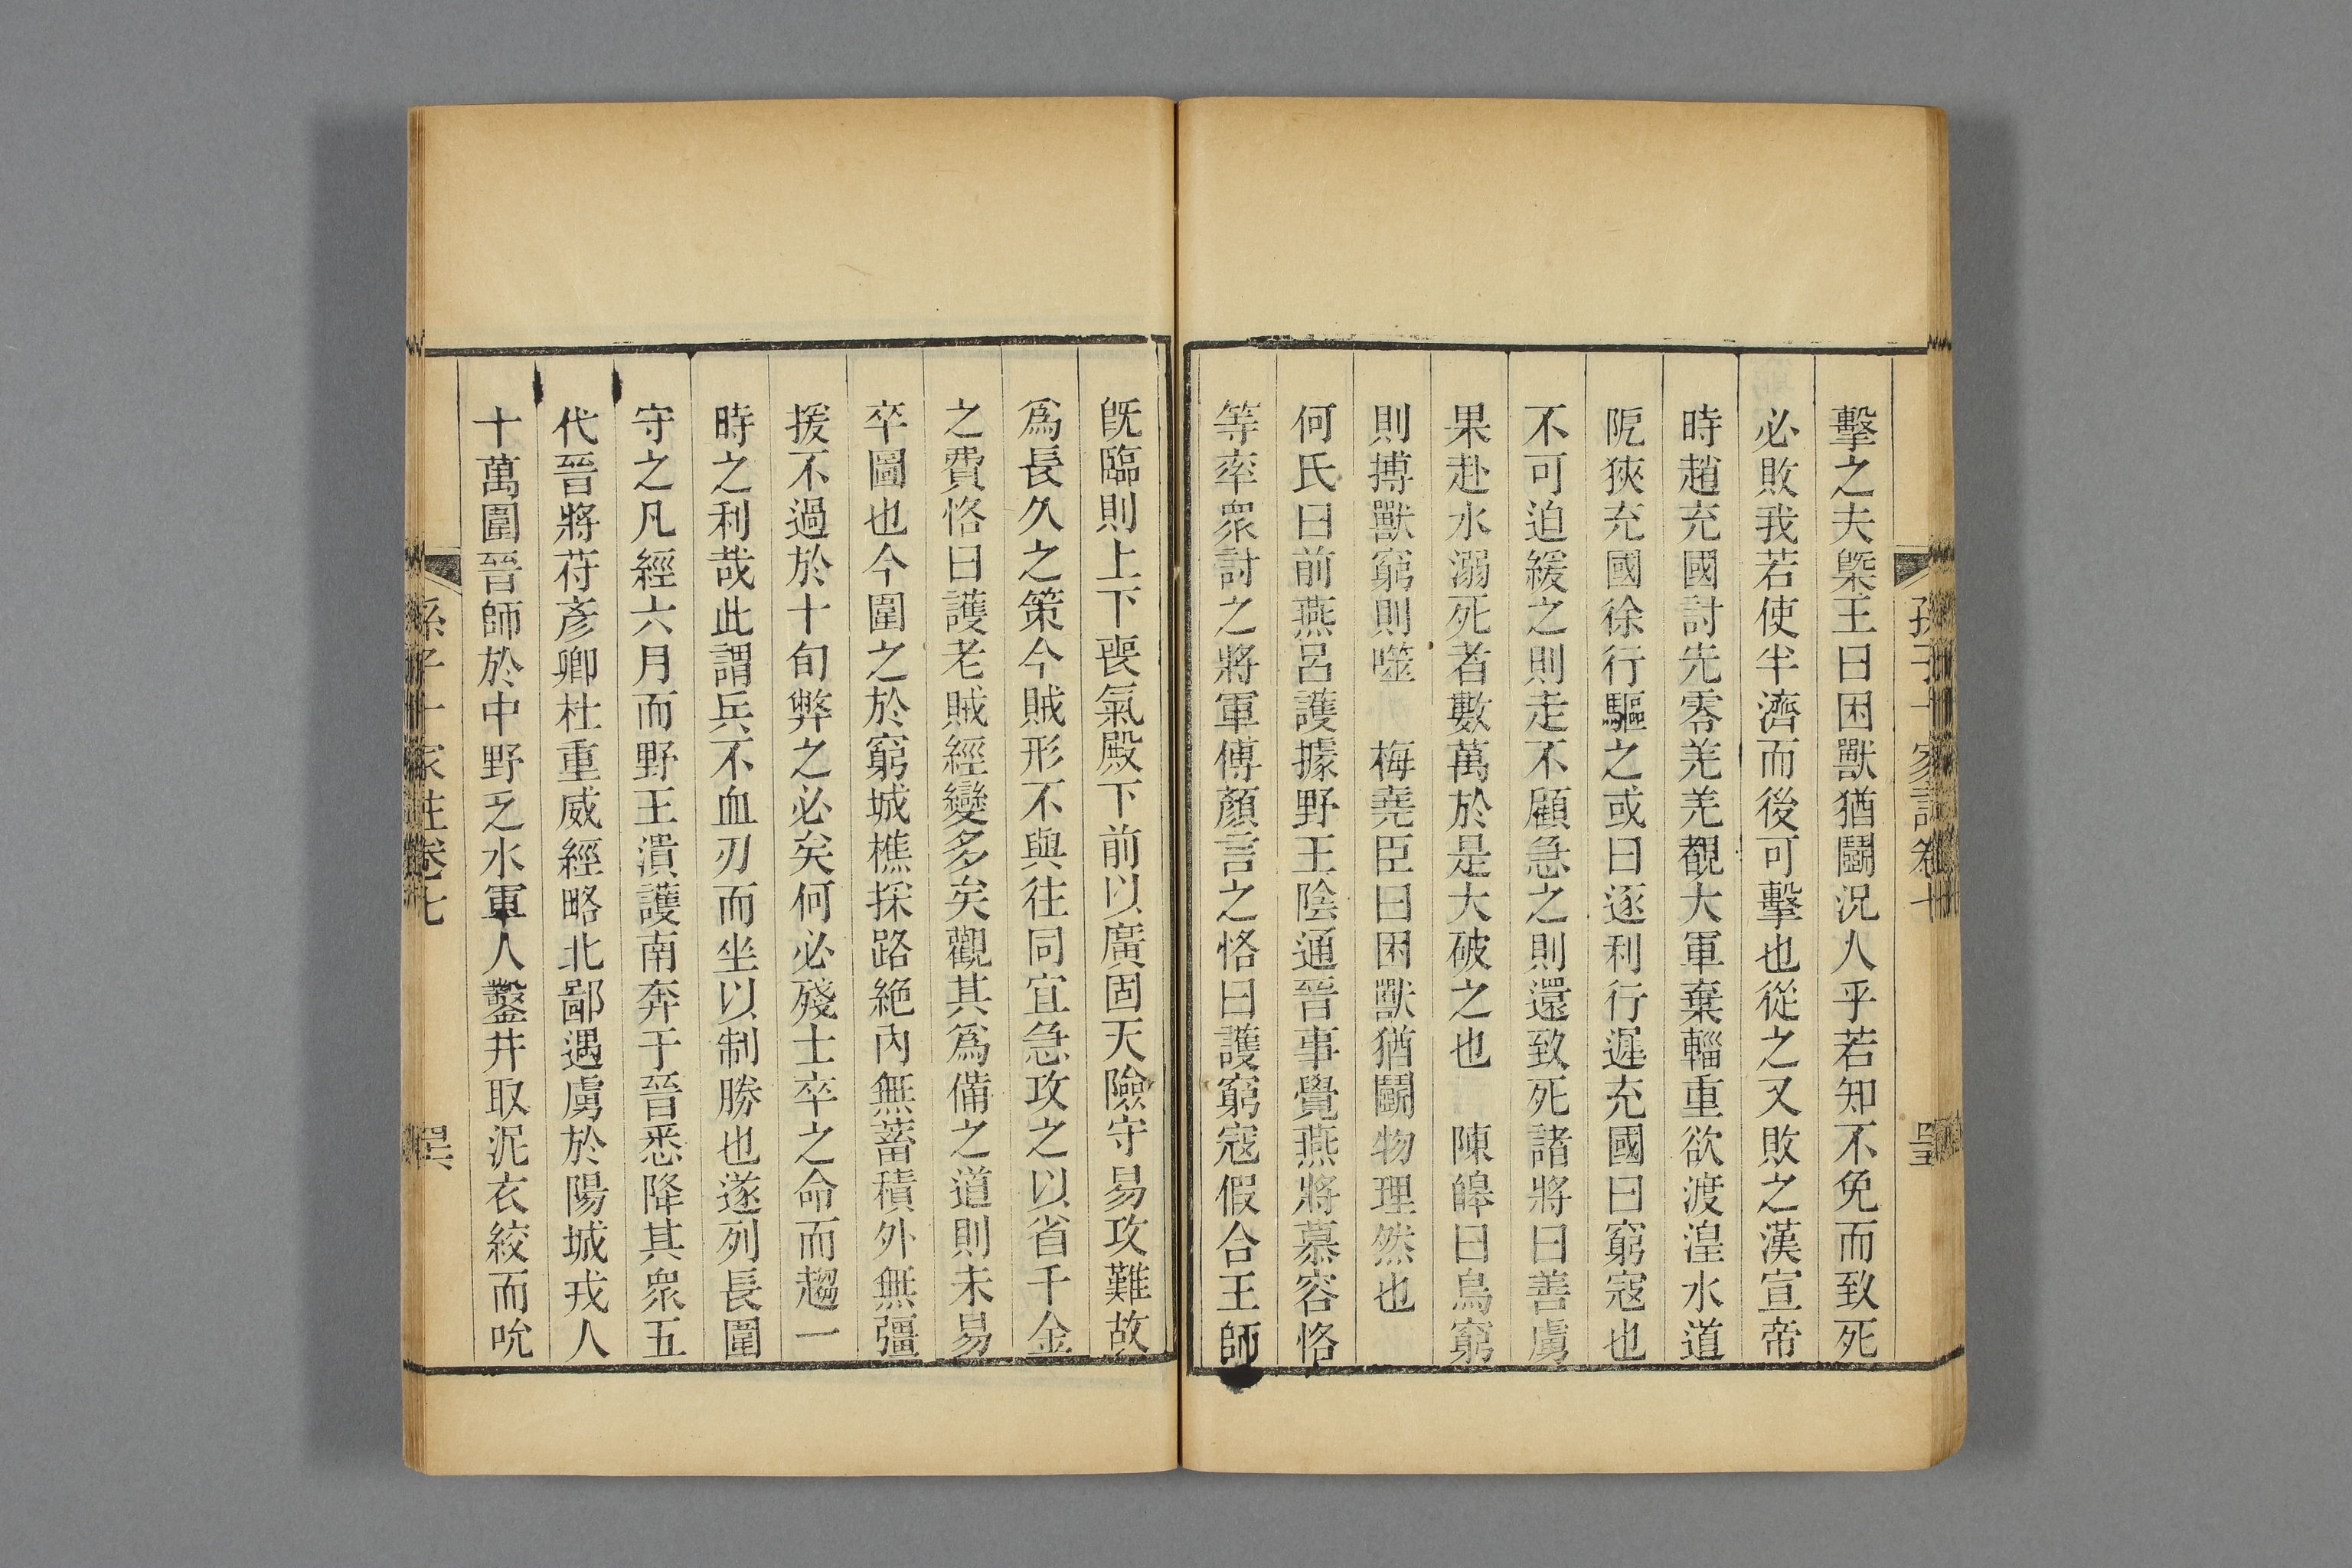 擊之夫槩王曰困獸猶鬭況人乎若知不免而致死
必敗我若使半濟而後可擊也從之又敗之漢宣帝
時趙充國討先零羌羌覩大軍棄輜重欲渡湟水道
阨狹充國徐行驅之或曰逐利行遲充國曰窮寇也
不可迫緩之則走不顧急之則還致死諸將曰善虜
果赴水溺死者數萬於是大破之也　陳皥曰鳥窮
則搏獸窮則噬　梅堯臣曰困獸猶鬭物理然也
何氏曰前燕呂護據野王陰通晉事覺燕將慕容恪
等率衆討之將軍傅顏言之恪曰護窮寇假合王師
旣臨則上下喪氣殿下前以廣固天險守易攻難故
爲長久之策今賊形不與往同宜急攻之以省千金
之費恪曰護老賊經變多矣觀其爲備之道則未易
卒圖也今圍之於窮城樵採路絶內無蓄積外無彊
援不過於十旬弊之必矣何必殘士卒之命而趨一
時之利哉此謂兵不血刃而坐以制勝也遂列長圍
守之凡經六月而野王潰護南奔于晉悉降其衆五
代晉將苻彥卿杜重威經略北鄙遇虜於陽城戎人
十萬圍晉師於中野乏水軍人鑿井取泥衣絞而吮
孫子十家註卷七